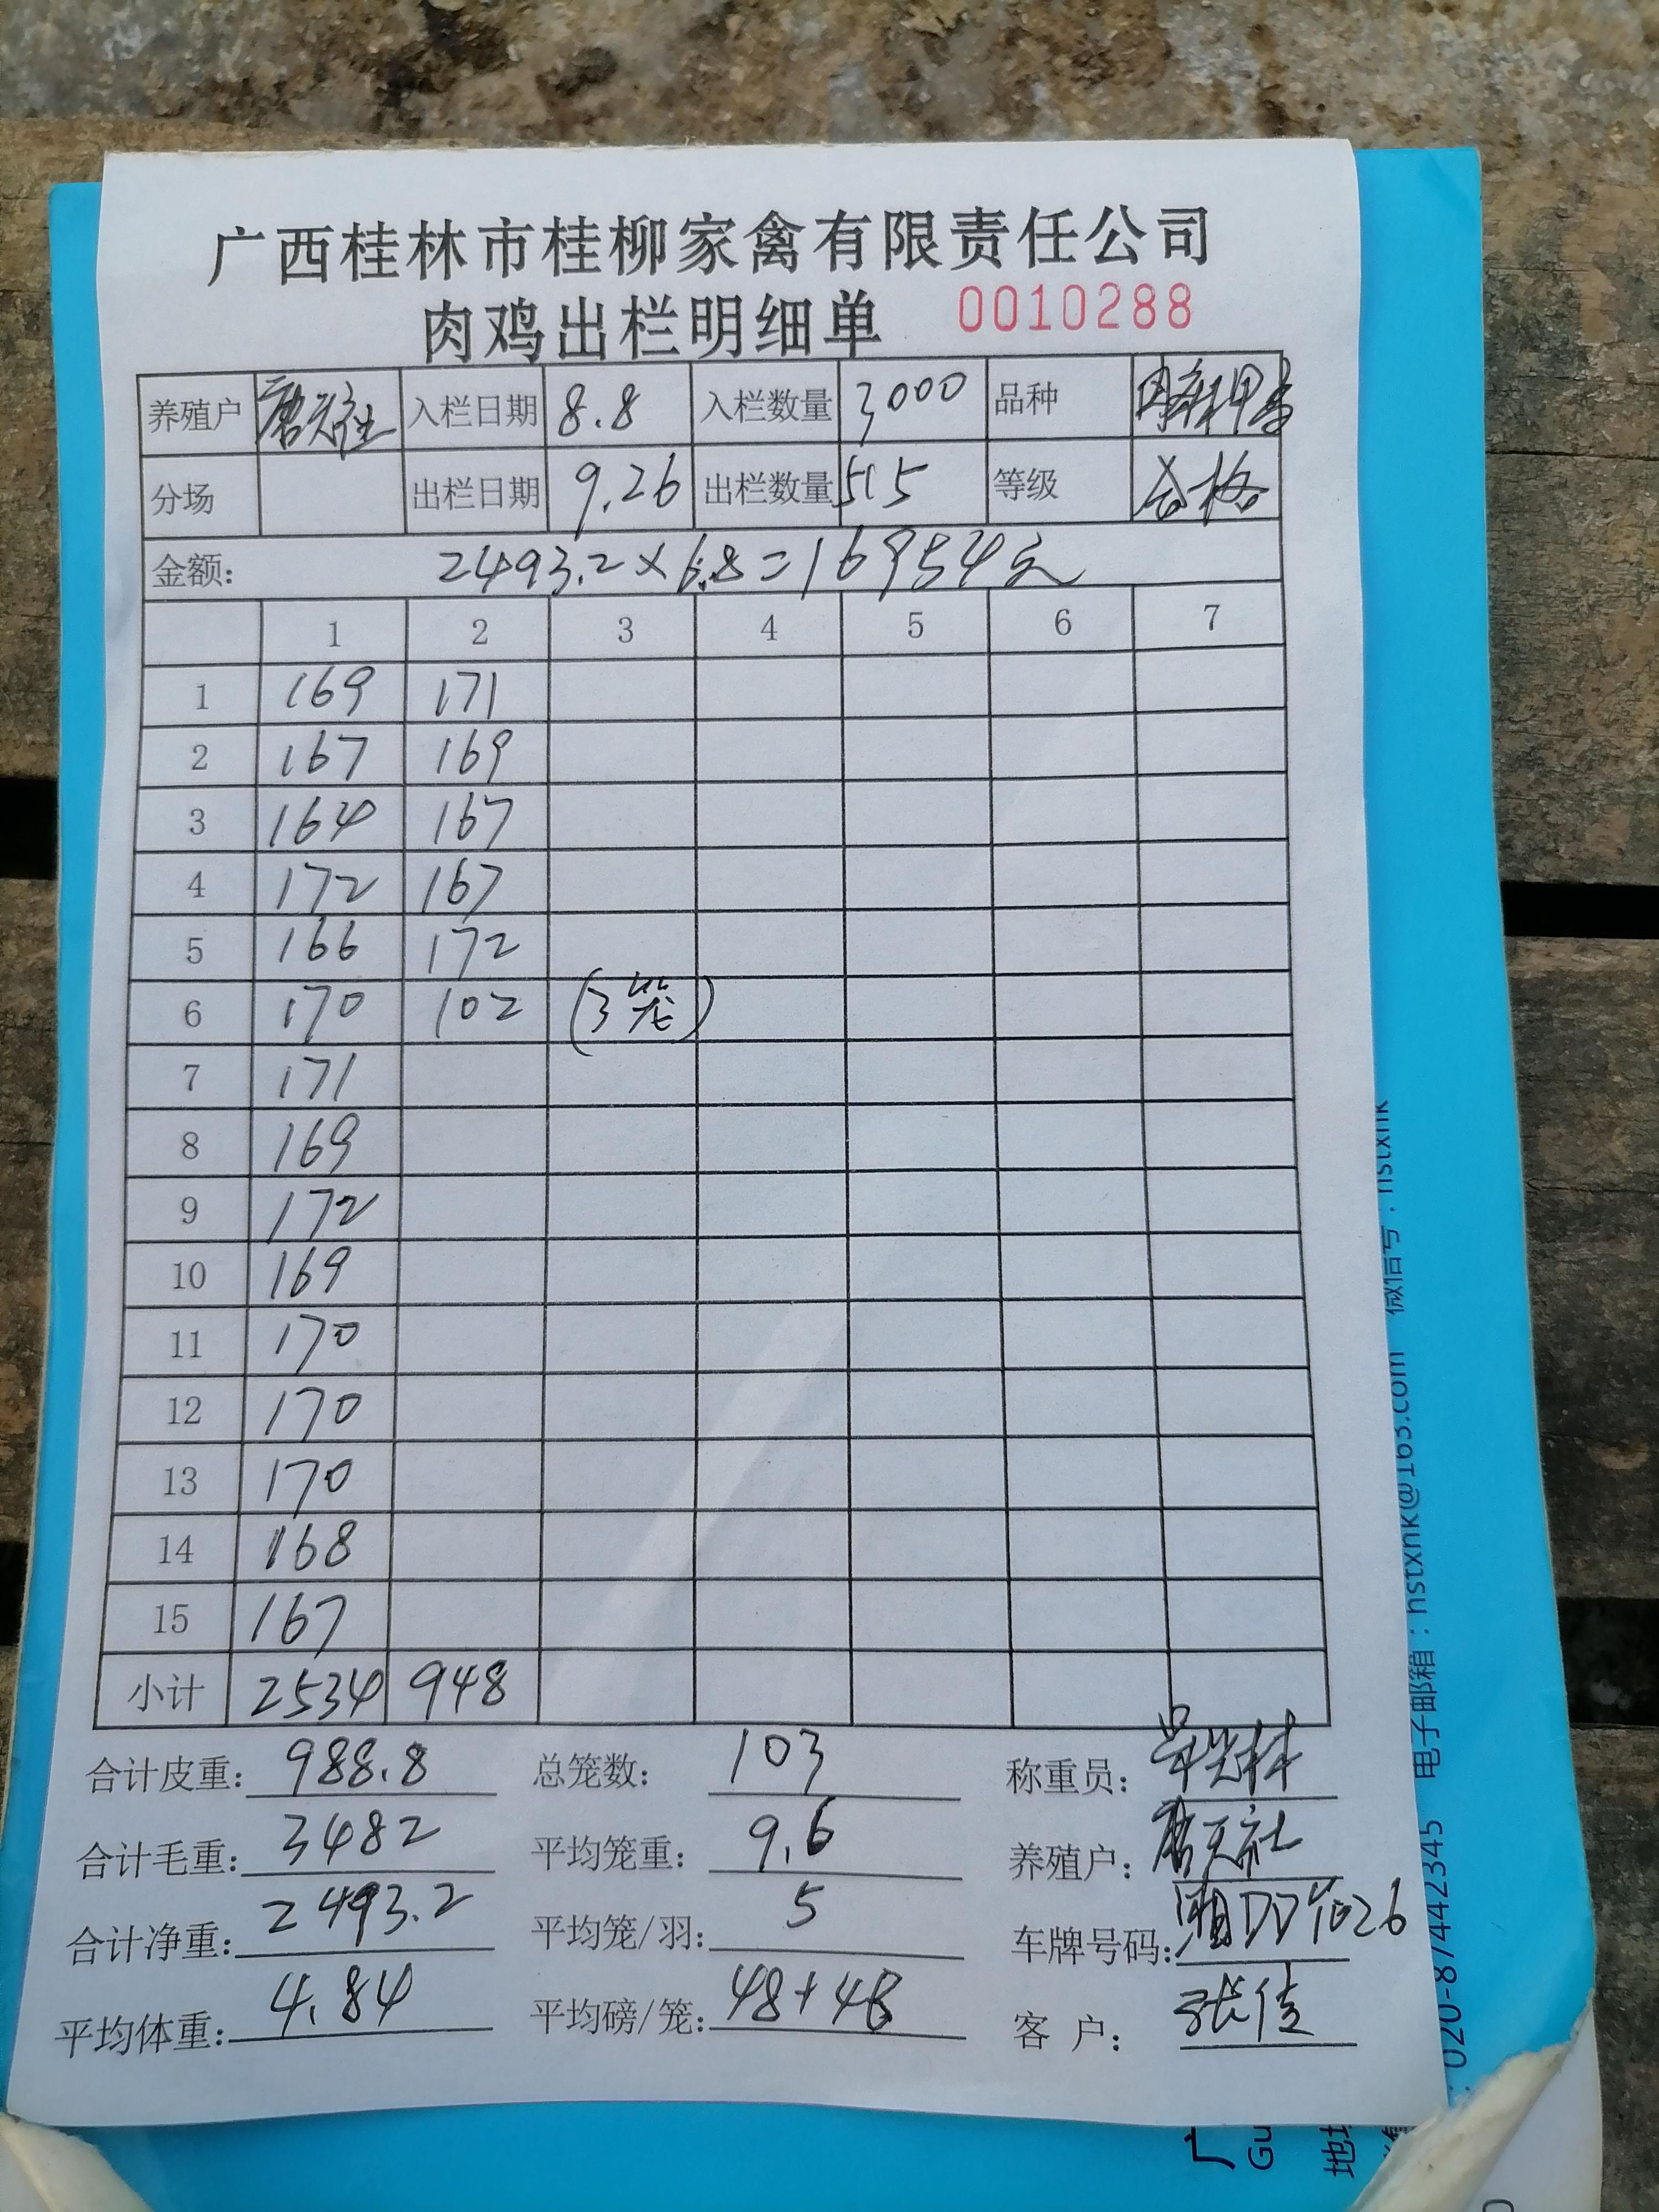 广西桂林市桂柳家禽有限责任公司
肉鸡出栏明细单 0010288
养殖户 入栏日期 8.8 入栏数量 3000 品种
分场 出栏日期 9.26 出栏数量 515 等级 合格
金额: 2493.2×6.8=16954元
1 2 3 4 5 6 7
1 169 171
2 167 169
3 164 167
4 172 167
5 166 172
6 170 102 (3笼)
7 171
8 169
9 172
10 169
11 170
12 170
13 170
14 168
15 167
小计 2534 948
合计皮重: 988.8 总笼数: 103 称重员:
合计毛重: 3482 平均笼重: 9.6 养殖户: 唐天社
合计净重: 2493.2 平均笼/羽: 5 车牌号码:
平均体重: 4.84 平均磅/笼: 48+48 客户: 张佳
电子邮箱:hstxnk@163.com 微信号:hstxnk
020-87442345
广
Gu
地址